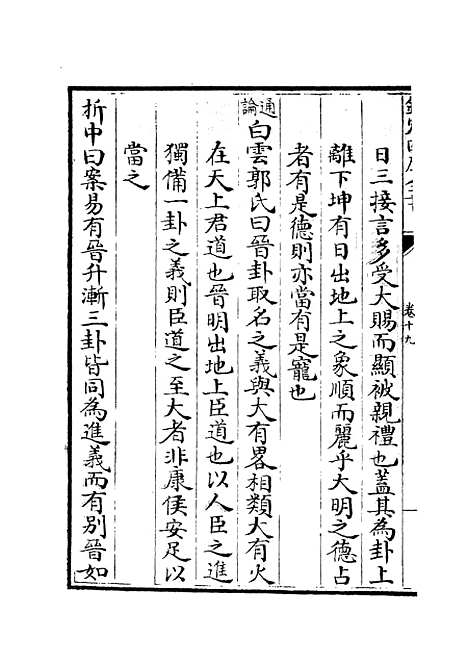 日三接言多受大賜而顯被親禮也蓋其為卦上
離下坤有日出地上之象順而麗乎大明之德占
者有是德則亦當有是寵也
通論白雲郭氏曰晉卦取名之義與大有畧相類大有火
在天上君道也晉明出地上臣道也以人臣之進
獨備一卦之義則臣道之至大者非康侯安足以
當之
折中曰案易有晉升漸三卦皆同為進義而有別晉如
卷十九